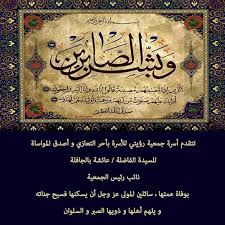 وبشر الصابرين
تتقدم أسرة جمعية رؤيتي للأسرة بأحر التعازي و أصدق المواساة
للسيدة الفاضلة / عائشة بالجافلة
نائب رئيس الجمعية
بوفاة عمتها ، سائلين المولى عز وجل أن يسكنها فسيح جناته
و يلهم أهلها و ذويها الصبر و السلوان